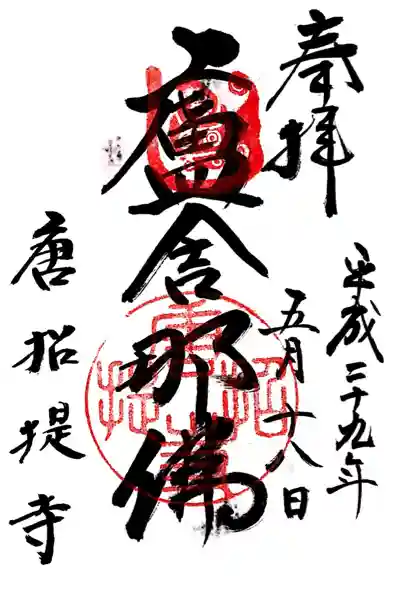 奉拝
平成二十九年
五月十八日
盧舎那佛
唐招提寺